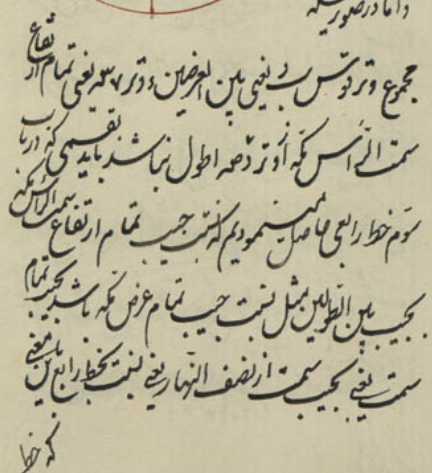 و اما در صورتیکه
مجموع وتر قوس ب یعنی بین العرضین و وتر یعنی تمام ارتفاع
سمت الرأس مکه از وتر اطول نباشد باید تقسمی که در باب
سوم خط رابعی حاصل مینمودیم که نسبت جیب تمام ارتفاع سمت الرأس مکه
بجیب بین الطولین مثل نسبت جیب تمام عرض مکه باشد بجیب تمام
سمت یعنی بجیب سمت از نصف النهار یعنی نسبت بخط رابع
که خط